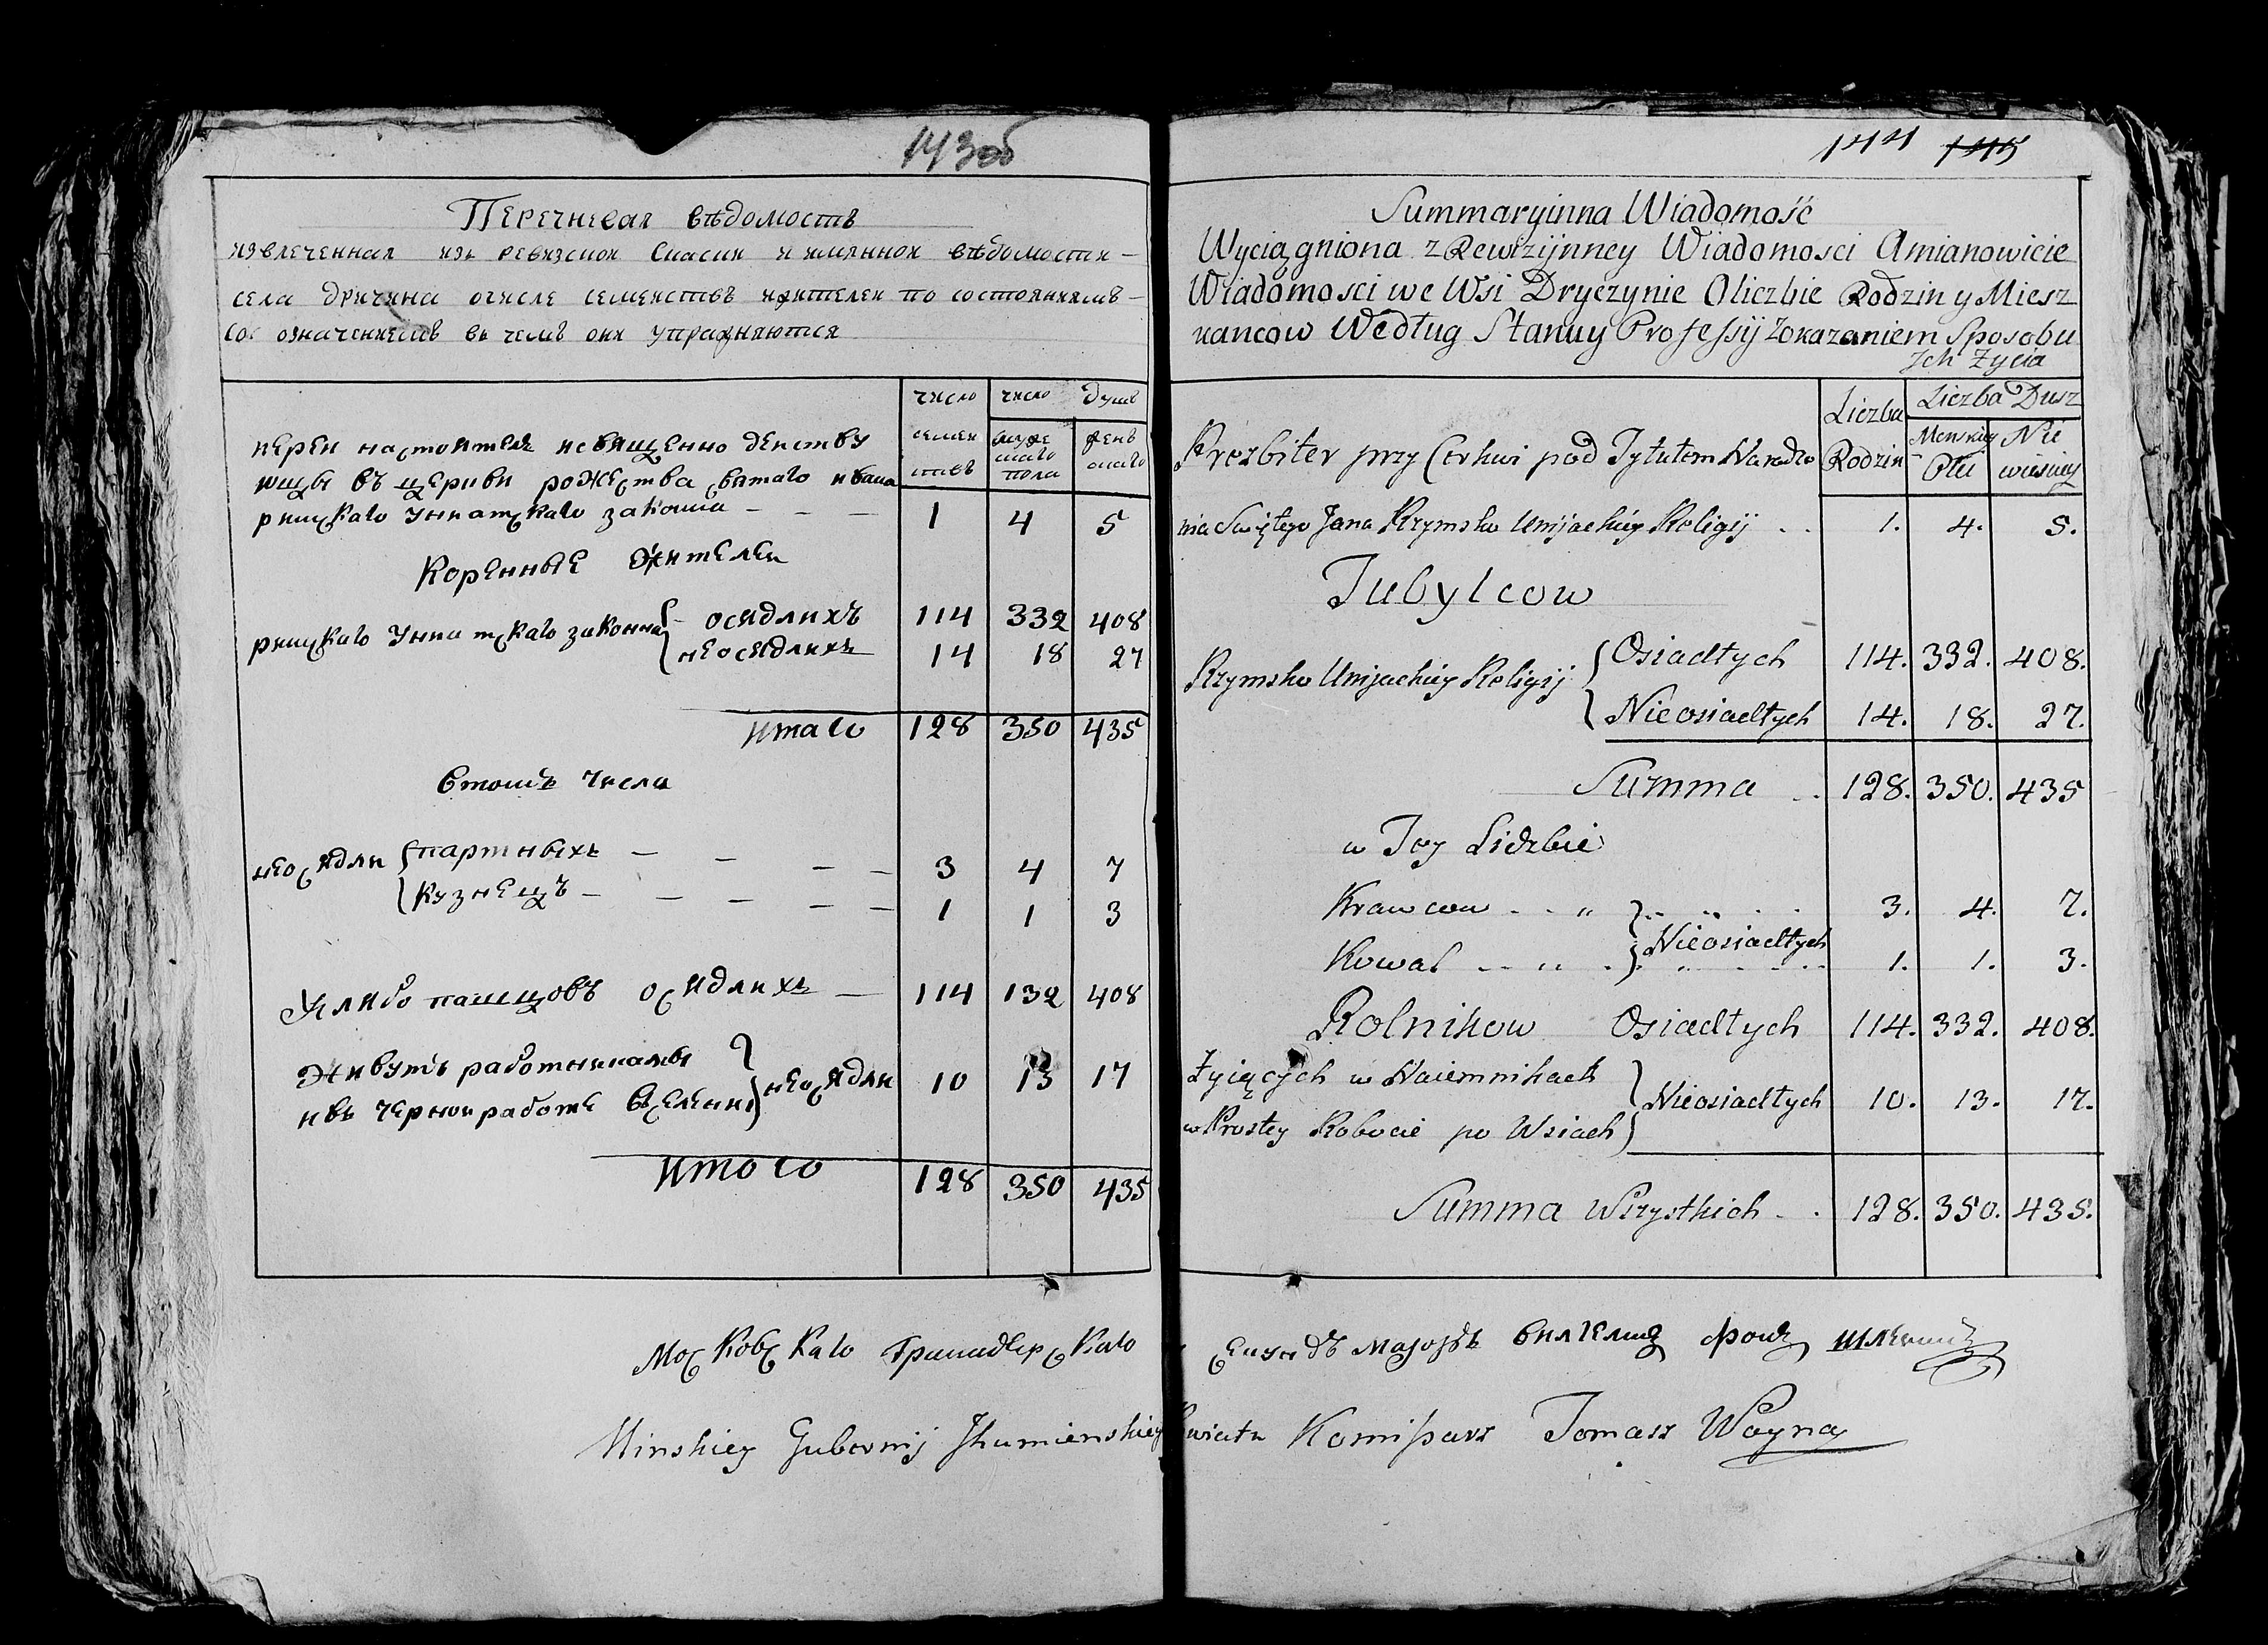 143об
Перечневая вѣдомость
извлеченная изъ ревизской сказки и имянной вѣдомости –
села дричина очисле семействъ ижителей по состояниямъ –
сос означениемъ въ чемъ они упражняются
число число душъ
семей муже женъ
ствъ скаго скаго
пола
иереи настоятель исвященно действу
ющы въ церкви рожества святаго ивана
римскаго униатскаго закона – – – 1 4 5
Коренные жителеи
римскаго униатскаго законна { осядлихъ 114 332 408
неосядлихъ 14 18 27
итаго 128 350 435
втомъ числа
неосядли { партныхъ – – – – 3 4 7
кузнецъ – – – – – 1 1 3
хлибо пашцовъ осядлихъ – 114 132 408
живутъ работникамы } неосядли 10 13 17
ивъ чернои работе вселении
итого 128 350 435
144 145
Summaryinna Wiadomość
Wyciągniona z Rewizyjnney Wiadomosci Amianowicie
Wiadomosci we Wsi Dryczynie Oliczbie Rodzin y Miesz
kancow Według Stanuy Professij Zokazaniem Sposobu
Jch Zycia
Liczba Liczba Dusz
Rodzin Menskiey Nie
Płci wieskiey
Prezbiter przy Cerkwi pod Tytułem Narodze
nia Swiętego Jana Rzymsko Unijackiey Religij . . 1. 4. 5.
Tubylcow
Rzymsko Unijackiey Religij { Osiadłych 114. 332. 408.
Nieosiadłych 14. 18. 27.
Summa . . 128. 350. 435
w Tey Lidzbie
Krawcow . . „ } . . . . 3. 4. 7.
Nieosiadłych
Kowal . . „ . } . . . . 1. 1. 3.
Rolnikow Osiadłych 114. 332. 408.
Zyiących w Naiemnikach } Nieosiadłych 10. 13. 17.
w Prostey Robocie po Wsiach
Summa Wszystkich . . 128. 350. 435.
Московскаго Гранадерскаго секундъ маjоръ вилгелмъ фонъ
Minskiey Gubernij Jhumienskiey Powiatu Komissarz Tomasz Woyna